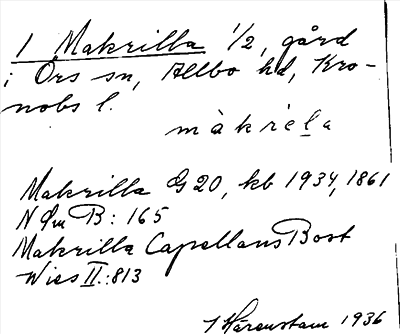 1 Makrilla 1/2, gård
i Örs sn, Allbo hd, Kro-
nobs l.
màkrela
Makrilla G 20, kb 1934, 1861
N Øm B: 165
Makrilla Capellans Bost
Wies II: 813
J Hårenstam 1936